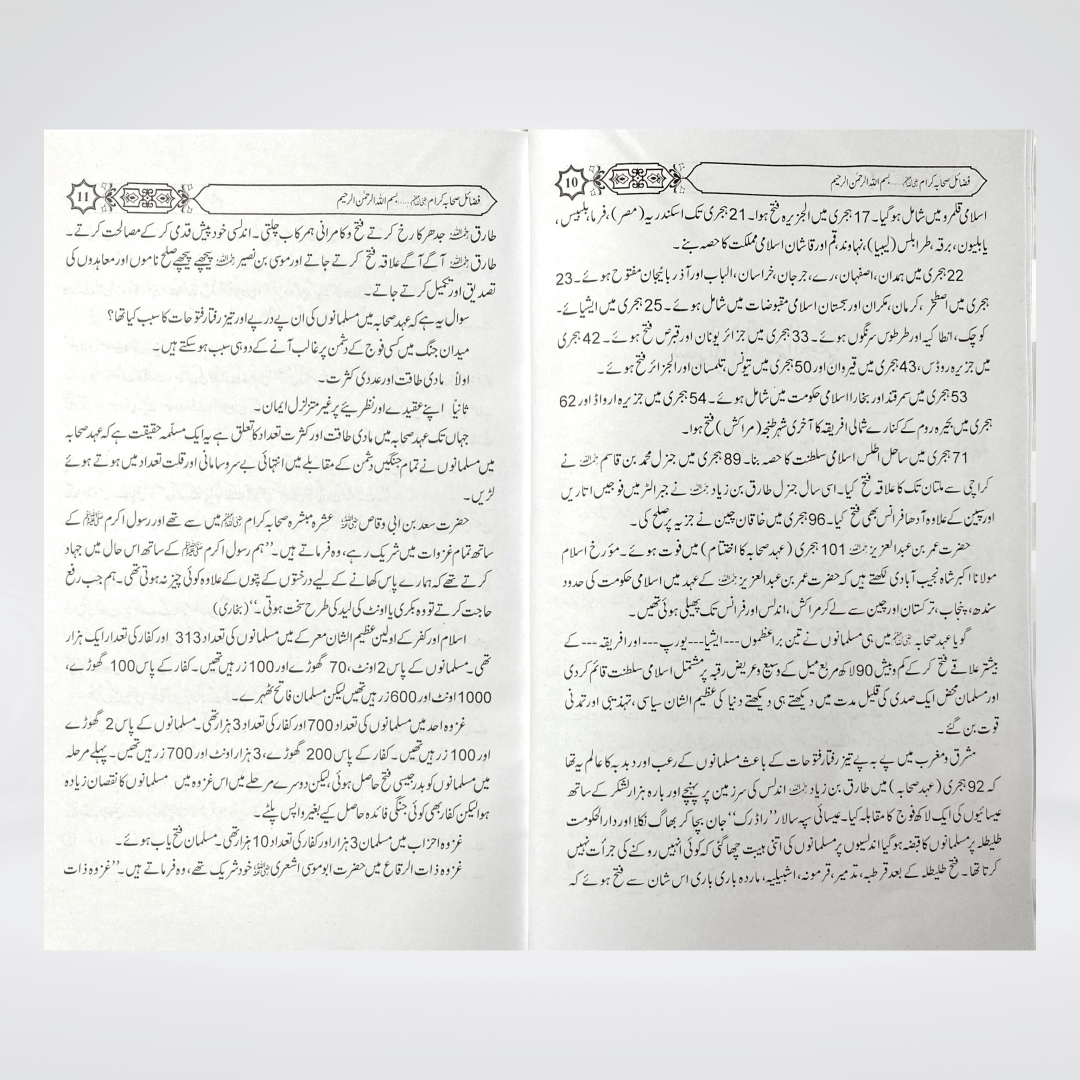 10
فضائل صحابہ کرام رضی اللہ عنہم.....بسم اللہ الرحمٰن الرحیم
اسلامی قلمرو میں شامل ہوگیا۔ 17 ہجری میں الجزیرہ فتح ہوا۔ 21 ہجری تک اسکندریہ (مصر)، فرما، بلبیس،
بابلیون، برقہ، طرابلس (لیبیا)، نہاوند، قم اور قاشان اسلامی مملکت کا حصہ بنے۔
22 ہجری میں ہمدان، اصفہان، رے، جرجان، خراسان، الباب اور آذربائیجان مفتوح ہوئے۔ 23
ہجری میں اصطخر، کرمان، مکران اور سجستان اسلامی مقبوضات میں شامل ہوئے۔ 25 ہجری میں ایشیائے
کوچک، انطاکیہ اور طرطوس سرنگوں ہوئے۔ 33 ہجری میں جزائر یونان اور قبرص فتح ہوئے۔ 42 ہجری
میں جزیرہ روڈس، 43 ہجری میں قیروان اور 50 ہجری میں تیونس، تلمسان اور الجزائر فتح ہوئے۔
53 ہجری میں سمرقند اور بخارا اسلامی حکومت میں شامل ہوئے۔ 54 ہجری میں جزیرہ ارواڈ اور 62
ہجری میں بحیرہ روم کے کنارے شمالی افریقہ کا آخری شہر طنجہ (مراکش) فتح ہوا۔
71 ہجری میں ساحل اطلس اسلامی سلطنت کا حصہ بنا۔ 89 ہجری میں جنرل محمد بن قاسم رحمہ اللہ نے
کراچی سے ملتان تک کا علاقہ فتح کیا۔ اسی سال جنرل طارق بن زیاد رحمہ اللہ نے جبرالٹر میں فوجیں اتاریں
اور سپین کے علاوہ آدھا فرانس بھی فتح کیا۔ 96 ہجری میں خاقان چین نے جزیہ پر صلح کی۔
حضرت عمر بن عبدالعزیز رحمہ اللہ 101 ہجری (عہد صحابہ کا اختتام) میں فوت ہوئے۔ مؤرخ اسلام
مولانا اکبر شاہ نجیب آبادی لکھتے ہیں کہ حضرت عمر بن عبدالعزیز رحمہ اللہ کے عہد میں اسلامی حکومت کی حدود
سندھ، پنجاب، ترکستان اور چین سے لے کر مراکش، اندلس اور فرانس تک پھیلی ہوئی تھیں۔
گویا عہد صحابہ رضی اللہ عنہم میں ہی مسلمانوں نے تین براعظموں---ایشیا---یورپ---اور افریقہ---کے
بیشتر علاقے فتح کر کے کم و بیش 90 لاکھ مربع میل کے وسیع و عریض رقبہ پر مشتمل اسلامی سلطنت قائم کردی
اور مسلمان محض ایک صدی کی قلیل مدت میں دیکھتے ہی دیکھتے دنیا کی عظیم الشان سیاسی، تہذیبی اور تمدنی
قوت بن گئے۔
مشرق و مغرب میں پے بہ پے تیز رفتار فتوحات کے باعث مسلمانوں کے رعب اور دبدبہ کا عالم یہ تھا
کہ 92 ہجری (عہد صحابہ) میں طارق بن زیاد رحمہ اللہ اندلس کی سرزمین پر پہنچے اور بارہ ہزار لشکر کے ساتھ
عیسائیوں کی ایک لاکھ فوج کا مقابلہ کیا۔ عیسائی سپہ سالار ”راڈرک“ جان بچا کر بھاگ نکلا اور دارالحکومت
طلیطلہ پر مسلمانوں کا قبضہ ہوگیا اندلسیوں پر مسلمانوں کی اتنی ہیبت چھاگئی کہ کوئی انہیں روکنے کی جرأت نہیں
کرتا تھا۔ فتح طلیطلہ کے بعد قرطبہ، تدمیر، قرمونہ، اشبیلیہ، ماردہ باری باری اس شان سے فتح ہوئے کہ
11
فضائل صحابہ کرام رضی اللہ عنہم.....بسم اللہ الرحمٰن الرحیم
طارق رحمہ اللہ جدھر کا رخ کرتے فتح و کامرانی ہمرکاب چلتی۔ اندلسی خود پیش قدمی کر کے مصالحت کرتے۔
طارق رحمہ اللہ آگے آگے علاقہ فتح کرتے جاتے اور موسی بن نصیر رحمہ اللہ پیچھے پیچھے صلح ناموں اور معاہدوں کی
تصدیق اور تکمیل کرتے جاتے۔
سوال یہ ہے کہ عہد صحابہ میں مسلمانوں کی ان پے در پے اور تیز رفتار فتوحات کا سبب کیا تھا؟
میدان جنگ میں کسی فوج کے دشمن پر غالب آنے کے دو ہی سبب ہوسکتے ہیں۔
اولاً مادی طاقت اور عددی کثرت۔
ثانیاً اپنے عقیدے اور نظریئے پر غیر متزلزل ایمان۔
جہاں تک عہد صحابہ میں مادی طاقت اور کثرت تعداد کا تعلق ہے یہ ایک مسلّمہ حقیقت ہے کہ عہد صحابہ
میں مسلمانوں نے تمام جنگیں دشمن کے مقابلے میں انتہائی بے سروسامانی اور قلت تعداد میں ہوتے ہوئے
لڑیں۔
حضرت سعد بن ابی وقاص رضی اللہ عنہ عشرہ مبشرہ صحابہ کرام رضی اللہ عنہم میں سے تھے اور رسول اکرم ﷺ کے
ساتھ تمام غزوات میں شریک رہے، وہ فرماتے ہیں۔ ”ہم رسول اکرم ﷺ کے ساتھ اس حال میں جہاد
کرتے تھے کہ ہمارے پاس کھانے کے لیے درختوں کے پتوں کے علاوہ کوئی چیز نہ ہوتی تھی۔ ہم جب رفع
حاجت کرتے تو وہ بکری یا اونٹ کی لید کی طرح سخت ہوتی۔“ (بخاری)
اسلام اور کفر کے اولین عظیم الشان معرکے میں مسلمانوں کی تعداد 313 اور کفار کی تعداد ایک ہزار
تھی۔ مسلمانوں کے پاس 2 اونٹ، 70 گھوڑے اور 100 زرہیں تھیں۔ کفار کے پاس 100 گھوڑے،
1000 اونٹ اور 600 زرہیں تھیں لیکن مسلمان فاتح ٹھہرے۔
غزوہ احد میں مسلمانوں کی تعداد 700 اور کفار کی تعداد 3 ہزار تھی۔ مسلمانوں کے پاس 2 گھوڑے
اور 100 زرہیں تھیں۔ کفار کے پاس 200 گھوڑے، 3 ہزار اونٹ اور 700 زرہیں تھیں۔ پہلے مرحلہ
میں مسلمانوں کو بدر جیسی فتح حاصل ہوئی لیکن دوسرے مرحلے میں اس غزوہ میں مسلمانوں کا نقصان زیادہ
ہوا لیکن کفار بھی کوئی جنگی فائدہ حاصل کیے بغیر واپس پلٹے۔
غزوہ احزاب میں مسلمان 3 ہزار اور کفار کی تعداد 10 ہزار تھی۔ مسلمان فتح یاب ہوئے۔
غزوہ ذات الرقاع میں حضرت ابوموسی اشعری رضی اللہ عنہ خود شریک تھے، وہ فرماتے ہیں۔ ”غزوہ ذات